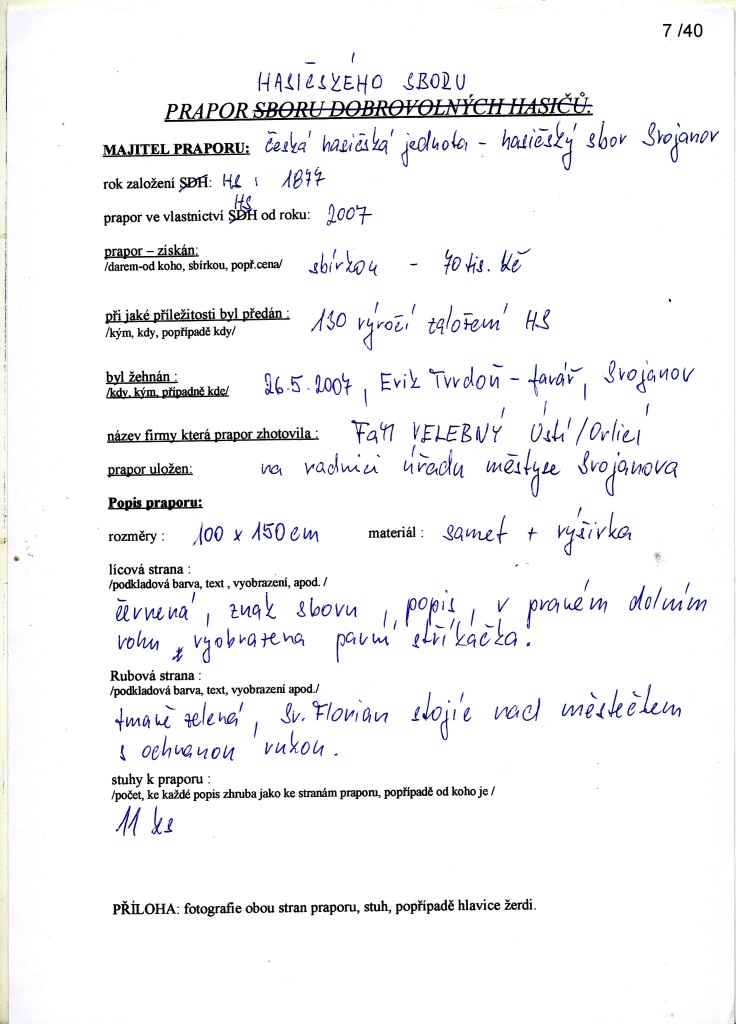 7 /40
HASIČSKÉHO SBORU
PRAPOR SBORU DOBROVOLNÝCH HASIČŮ.
MAJITEL PRAPORU: česká hasičská jednota - hasičský sbor Svojanov
rok založení SDH: HS : 1877
HS
prapor ve vlastnictví SDH od roku: 2007
prapor – získán:
/darem-od koho, sbírkou, popř.cena/ sbírkou - 70 tis. Kč
při jaké příležitosti byl předán :
/kým, kdy, popřípadě kdy/ 130 výročí založení HS
byl žehnán :
/kdy, kým, případně kde/ 26.5.2007, Erik Tvrdoň - farář, Svojanov
název firmy která prapor zhotovila : Fa VELEBNÝ Ústí/Orlicí
prapor uložen: na radnici úřadu městyse Svojanova
Popis praporu:
rozměry : 100 x 150 cm materiál : samet + výšivka
lícová strana :
/podkladová barva, text , vyobrazení, apod. /
červená, znak sboru, popis, v pravém dolním
rohu vyobrazena parní stříkačka.
Rubová strana :
/podkladová barva, text, vyobrazení apod./
tmavě zelená, Sv. Florian stojíc nad městečkem
s ochranou rukou.
stuhy k praporu :
/počet, ke každé popis zhruba jako ke stranám praporu, popřípadě od koho je /
11 ks
PŘÍLOHA: fotografie obou stran praporu, stuh, popřípadě hlavice žerdi.